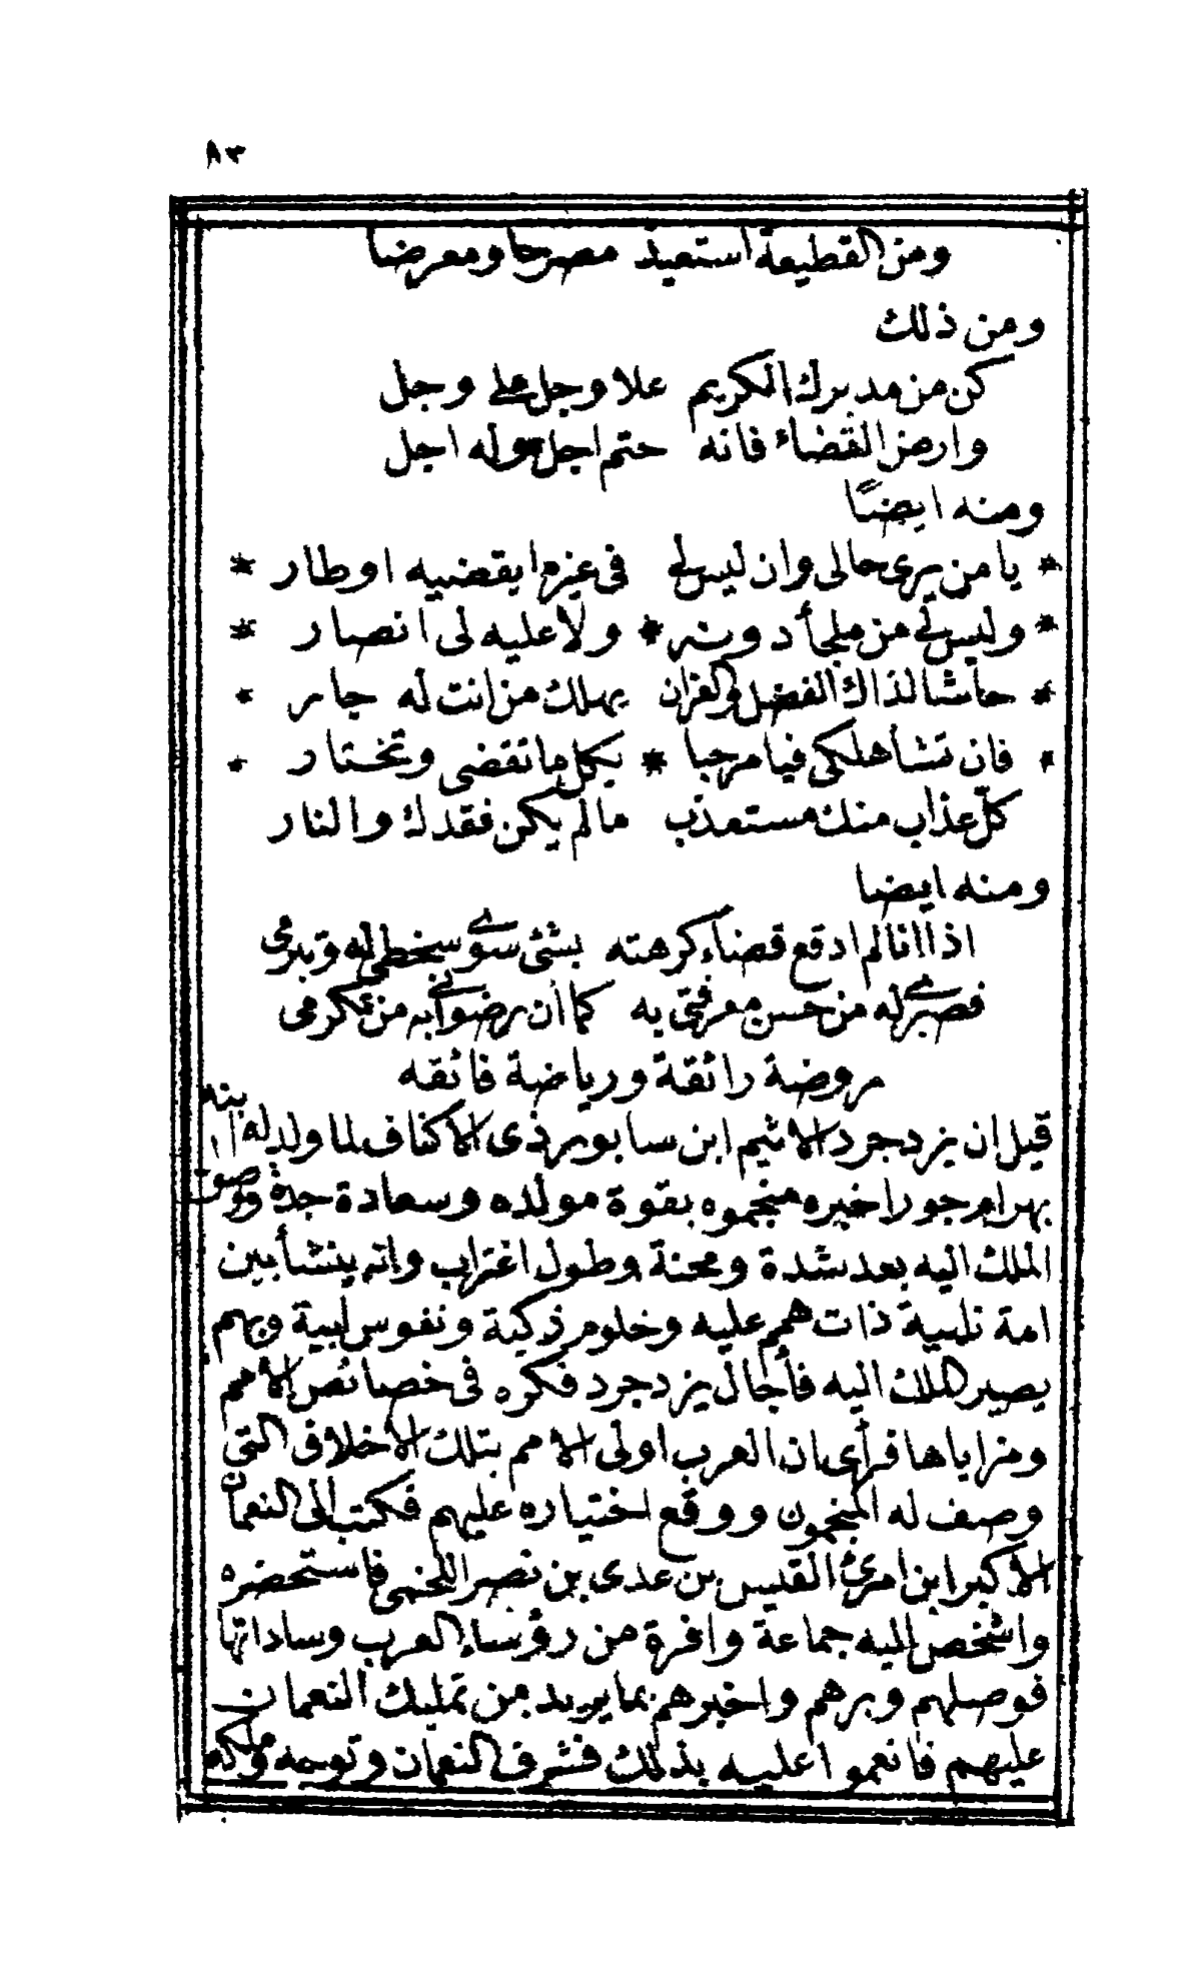 ٨٣
ومن القطيعة استعيذ مصرحا ومعرضا
ومن ذلك
كن من مدبرك الكريم علا وجل على وجل
وارض القضاء فانه حتم اجل وله اجل
ومنه ايضًا
* يا من يرى حالى وان ليس لى فى غير ما يقضيه اوطار *
* وليس لى من ملجأ دونه * ولا عليه لى انصار *
* حاشا لذاك الفضل والغفران يهلك من انت له جار *
* فان تشأ هلكى فيا مرحبا * بكل ما تقضى وتختار *
كلّ عذاب منك مستعذب مالم يكن فقدك والنار
ومنه ايضا
اذا انا لم ادفع قضاء كرهته بشئ سوى سخطى له وتبرمى
فصبرى له من حسن معرفتى به كما أن رضوانى به من تكرمى
روضة رائقة ورياضة فائقه
قيل ان يزدجرد الاثيم ابن سابور ذى الاكتاف لما ولد له ابنه
بهرام جور اخبره منجموه بقوة مولده وسعادة جده ووصول
الملك اليه بعد شدة ومحنة وطول اغتراب وانه ينشأ بين
امة نايية ذات همم عليه وحلوم زكية ونفوس ابية وبهم
يصير الملك اليه فأجال يزدجرد فكره فى خصائص الامم
ومزاياها فرأى ان العرب اولى الامم بتلك الأخلاق التى
وصف له المنجمون ووقع اختياره عليهم فكتب الى النعمان
الاكبر ابن امرئ القيس بن عدى بن نصر اللخمى فاستحضره
واشخص اليه جماعة وافرة من رؤساء العرب وساداتها
فوصلهم وبرهم واخبرهم بما يريد من تمليك النعمان
عليهم فانعموا عليه بذلك فشرف النعمان وتوجه وملكه